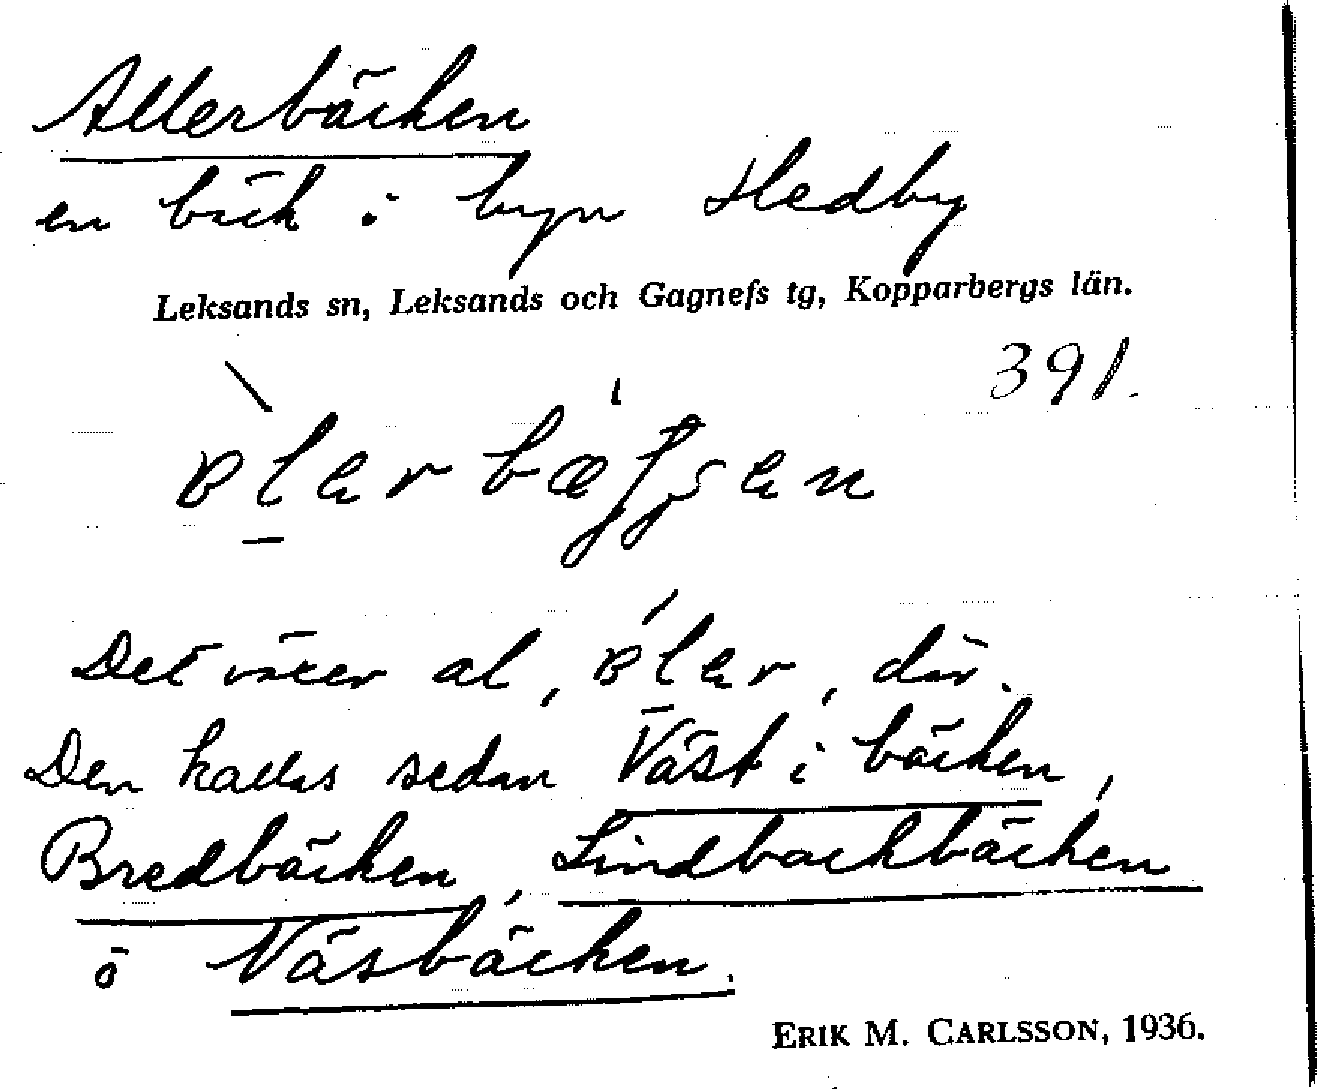 Allerbäcken
en bäck i byn Hedby
Leksands sn, Leksands och Gagnefs tg, Kopparbergs län.
391.
Det växer al, där.
Den kallas sedan Väst i bäcken,
Bredbäcken, Lindbackbäcken
o Väsbäcken.
ERIK M. CARLSSON, 1936.